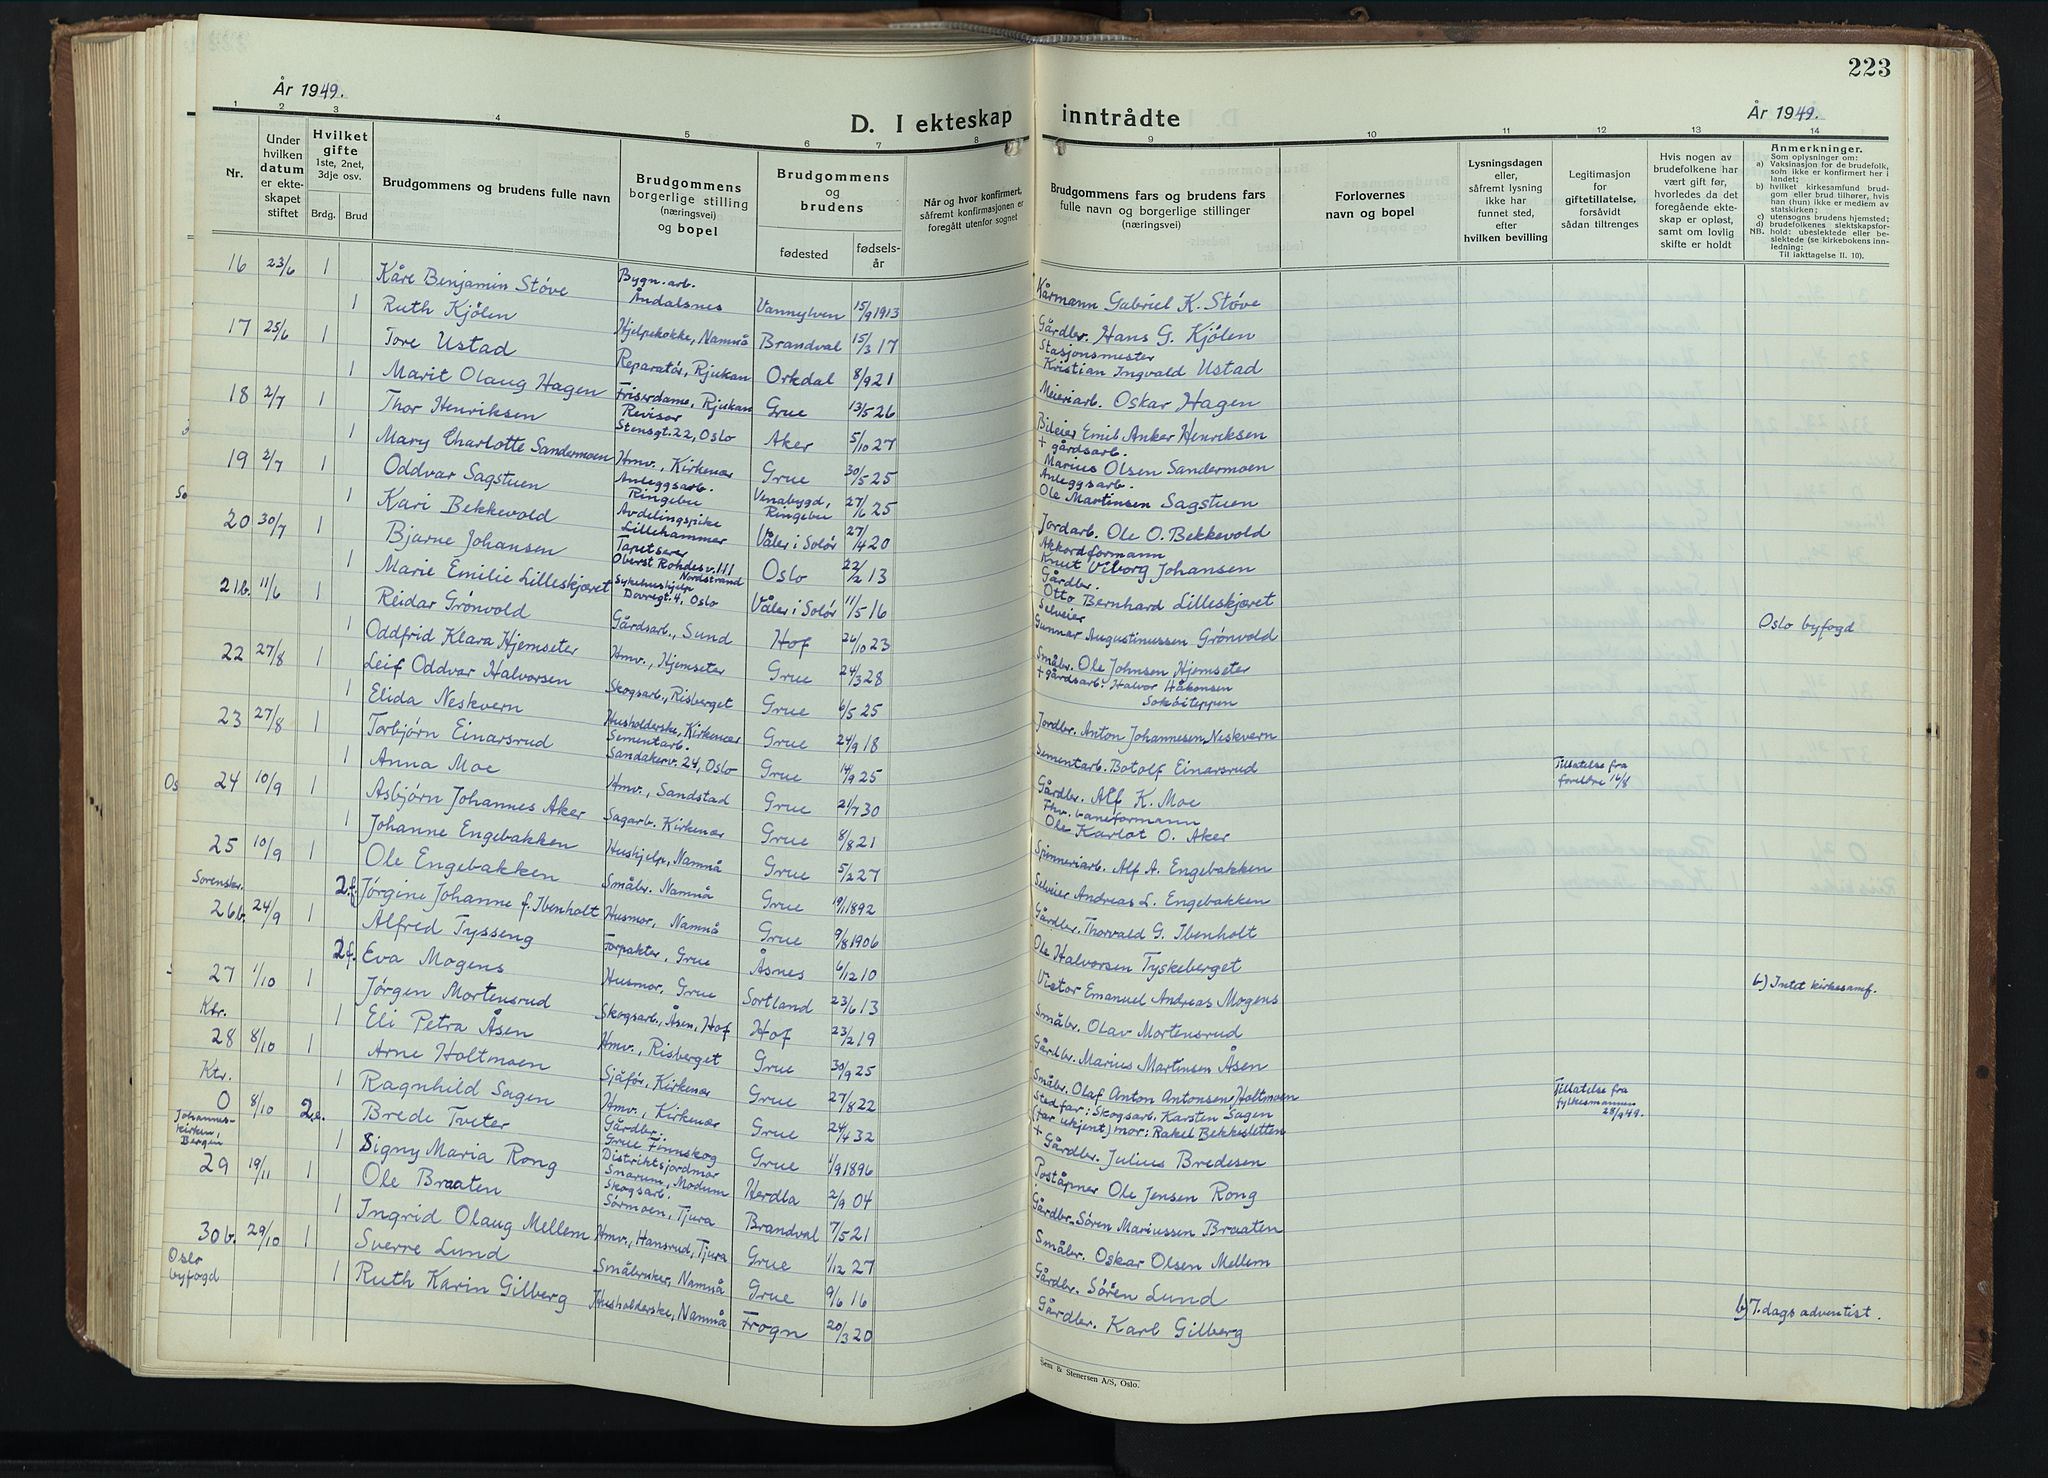 År 1949.
D. I ekteskap inntrådte
År 1949.
223
1 2 3 4 5 6 7 8 9 10 11 12 13 14
Nr.
Under hvilken datum er ekteskapet stiftet
Hvilket gifte 1ste, 2net, 3dje osv.
Brdg. Brud
Brudgommens og brudens fulle navn
Brudgommens borgerlige stilling (næringsvei) og bopel
Brudgommens og brudens
fødested
fødselsår
Når og hvor konfirmert, såfremt konfirmasjonen er foregått utenfor sognet
Brudgommens fars og brudens fars fulle navn og borgerlige stillinger (næringsvei)
Forlovernes navn og bopel
Lysningsdagen eller, såfremt lysning ikke har funnet sted, efter hvilken bevilling
Legitimasjon for giftetillatelse, forsåvidt sådan tiltrenges
Hvis nogen av brudefolkene har vært gift før, hvorledes da det foregående ekteskap er opløst, samt om lovlig skifte er holdt
Anmerkninger.
Som oplysninger om:
a) Vaksinasjon for de brudefolk, som ikke er konfirmert her i landet;
b) hvilket kirkesamfund brudgom eller brud tilhører, hvis han (hun) ikke er medlem av statskirken;
c) utensogns brudens hjemsted;
d) brudefolkenes slektskapsforhold: ubeslektede eller beslektede (se kirkebokens innledning:
NB. Til iakttagelse II. 10).
16 23/6 1 Kåre Benjamin Støve Bygn.arb. Åndalsnes Vannylven 15/9 1913 Kårmann Gabriel K. Støve
1 Ruth Kjølen Hjelpekokke, Namnå Brandval 15/3 17 Gårdbr. Hans G. Kjölen
17 25/6 1 Tore Ustad Reparatør, Rjukan Orkdal 8/9 21 Stasjonsmester Kristian Ingvald Ustad
1 Marit Olaug Hagen Friserdame, Rjukan Grue 13/5 26 Meieriarb. Oskar Hagen
18 2/7 1 Thor Henriksen Revisor Stensgt. 22, Oslo Aker 5/10 27 Bileier Emil Anker Henriksen
1 Mary Charlotte Sandermoen Hmv., Kirkenær Grue 30/5 25 + gårdsarb. Marius Olsen Sandermoen
19 2/7 1 Oddvar Sagstuen Anleggsarb. Ringebu Venabygd, Ringebu 27/6 25 Anleggsarb. Ole Martinsen Sagstuen
1 Kari Bekkevold Avdelingspike Lillehammer Våler i Solør 27/4 20 Jordarb. Ole O. Bekkevold
20 30/7 1 Bjarne Johansen Tapetserer Oberst Rohdes v. 111 Nordstrand Oslo 22/2 13 Akkordformann Knut Viborg Johansen
1 Marie Emilie Lilleskjæret Sykehushjelp Dovregt. 4, Oslo Våler i Solør 11/5 16 Gårdbr. Otto Bernhard Lilleskjæret
21b. 11/6 1 Reidar Grönvold Gårdsarb., Sund Hof 26/10 23 Selveier Gunnar Augustinussen Grönvold Oslo byfogd
1 Oddfrid Klara Hjemseter Hmv., Hjemseter Grue 24/3 28 Småbr. Ole Johnsen Hjemseter
22 27/8 1 Leif Oddvar Halvorsen Skogsarb., Risberget Grue 6/5 25 + gårdsarb. Halvor Håkonsen
1 Elida Neskvern Husholderske, Kirkenær Grue 24/9 18 Jordbr. Anton Johannesen Neskvern
23 27/8 1 Torbjörn Einarsrud Sementarb. Sandakerv. 24, Oslo Grue 14/9 25 Sementarb. Botolf Einarsrud
1 Anna Moe Hmv., Sandstad Grue 21/7 30 Gårdbr. Alf K. Moe Tillatelse fra foreldre 16/8
24 10/9 1 Asbjörn Johannes Aker Sagarb. Kirkenær Grue 8/8 21 Fhv. baneformann Ole Karlot O. Aker
1 Johanne Engebakken Hushjelp, Namnå Grue 5/2 27 Spinneriarb. Alf A. Engebakken
25 10/9 1 Ole Engebakken Småbr. Namnå Grue 19/1 1892 Selveier Andreas L. Engebakken
Sorenskr. 2.f. Jörgine Johanne f. Ibenholt Husmor, Namnå Grue 9/8 1906 Gårdbr. Thorvald G. Ibenholt
26b. 24/9 1 Alfred Tysseng Forpakter, Grue Åsnes 6/12 10 Ole Halvorsen Tyskeberget
2f. Eva Mogens Husmor, Grue Sortland 23/6 13 Victor Emanuel Andreas Mogens b) Intet kirkesamf.
27 1/10 1 Jörgen Mortensrud Skogsarb., Åsen, Hof Hof 23/2 19 Småbr. Olav Mortensrud
Ktr. 1 Eli Petra Åsen Hmv., Risberget Grue 30/9 25 Gårdbr. Marius Martinsen Åsen
28 8/10 1 Arne Holtmoen Sjåför, Kirkenær Grue 27/8 22 Småbr. Olaf Anton Antonsen Holtmoen
Ktr. 1 Ragnhild Sagen Hmv., Kirkenær Grue 24/4 32 Stedfar: Skogsarb. Karsten Sagen (far ukjent) mor: Rakel Bekkesletten Tillatelse fra fylkesmannen 28/9 49.
0 8/10 2.e. Brede Tveter Gårdbr. Grue Finnskog Grue 1/9 1896 + Gårdbr. Julius Bredesen
Johanneskirken, Bergen 1 Signy Maria Rong Distriktsjordmor Snarum, Modum Herdla 2/9 04 Poståpner Ole Jensen Rong
29 19/11 1 Ole Braaten Skogsarb. Sörmoen, Tjura Brandval 7/5 21 Gårdbr. Sören Mariussen Braaten
1 Ingrid Olaug Mellem Hmv., Hansrud, Tjura Grue 1/12 27 Småbr. Oskar Olsen Mellem
30b. 29/10 1 Sverre Lund Småbruker, Namnå Grue 9/6 16 Gårdbr. Sören Lund
Oslo byfogd 1 Ruth Karin Gilberg Husholderske, Namnå Frogn 20/3 20 Gårdbr. Karl Gilberg b) 7. dags adventist.
Sem & Stenersen A/S, Oslo.